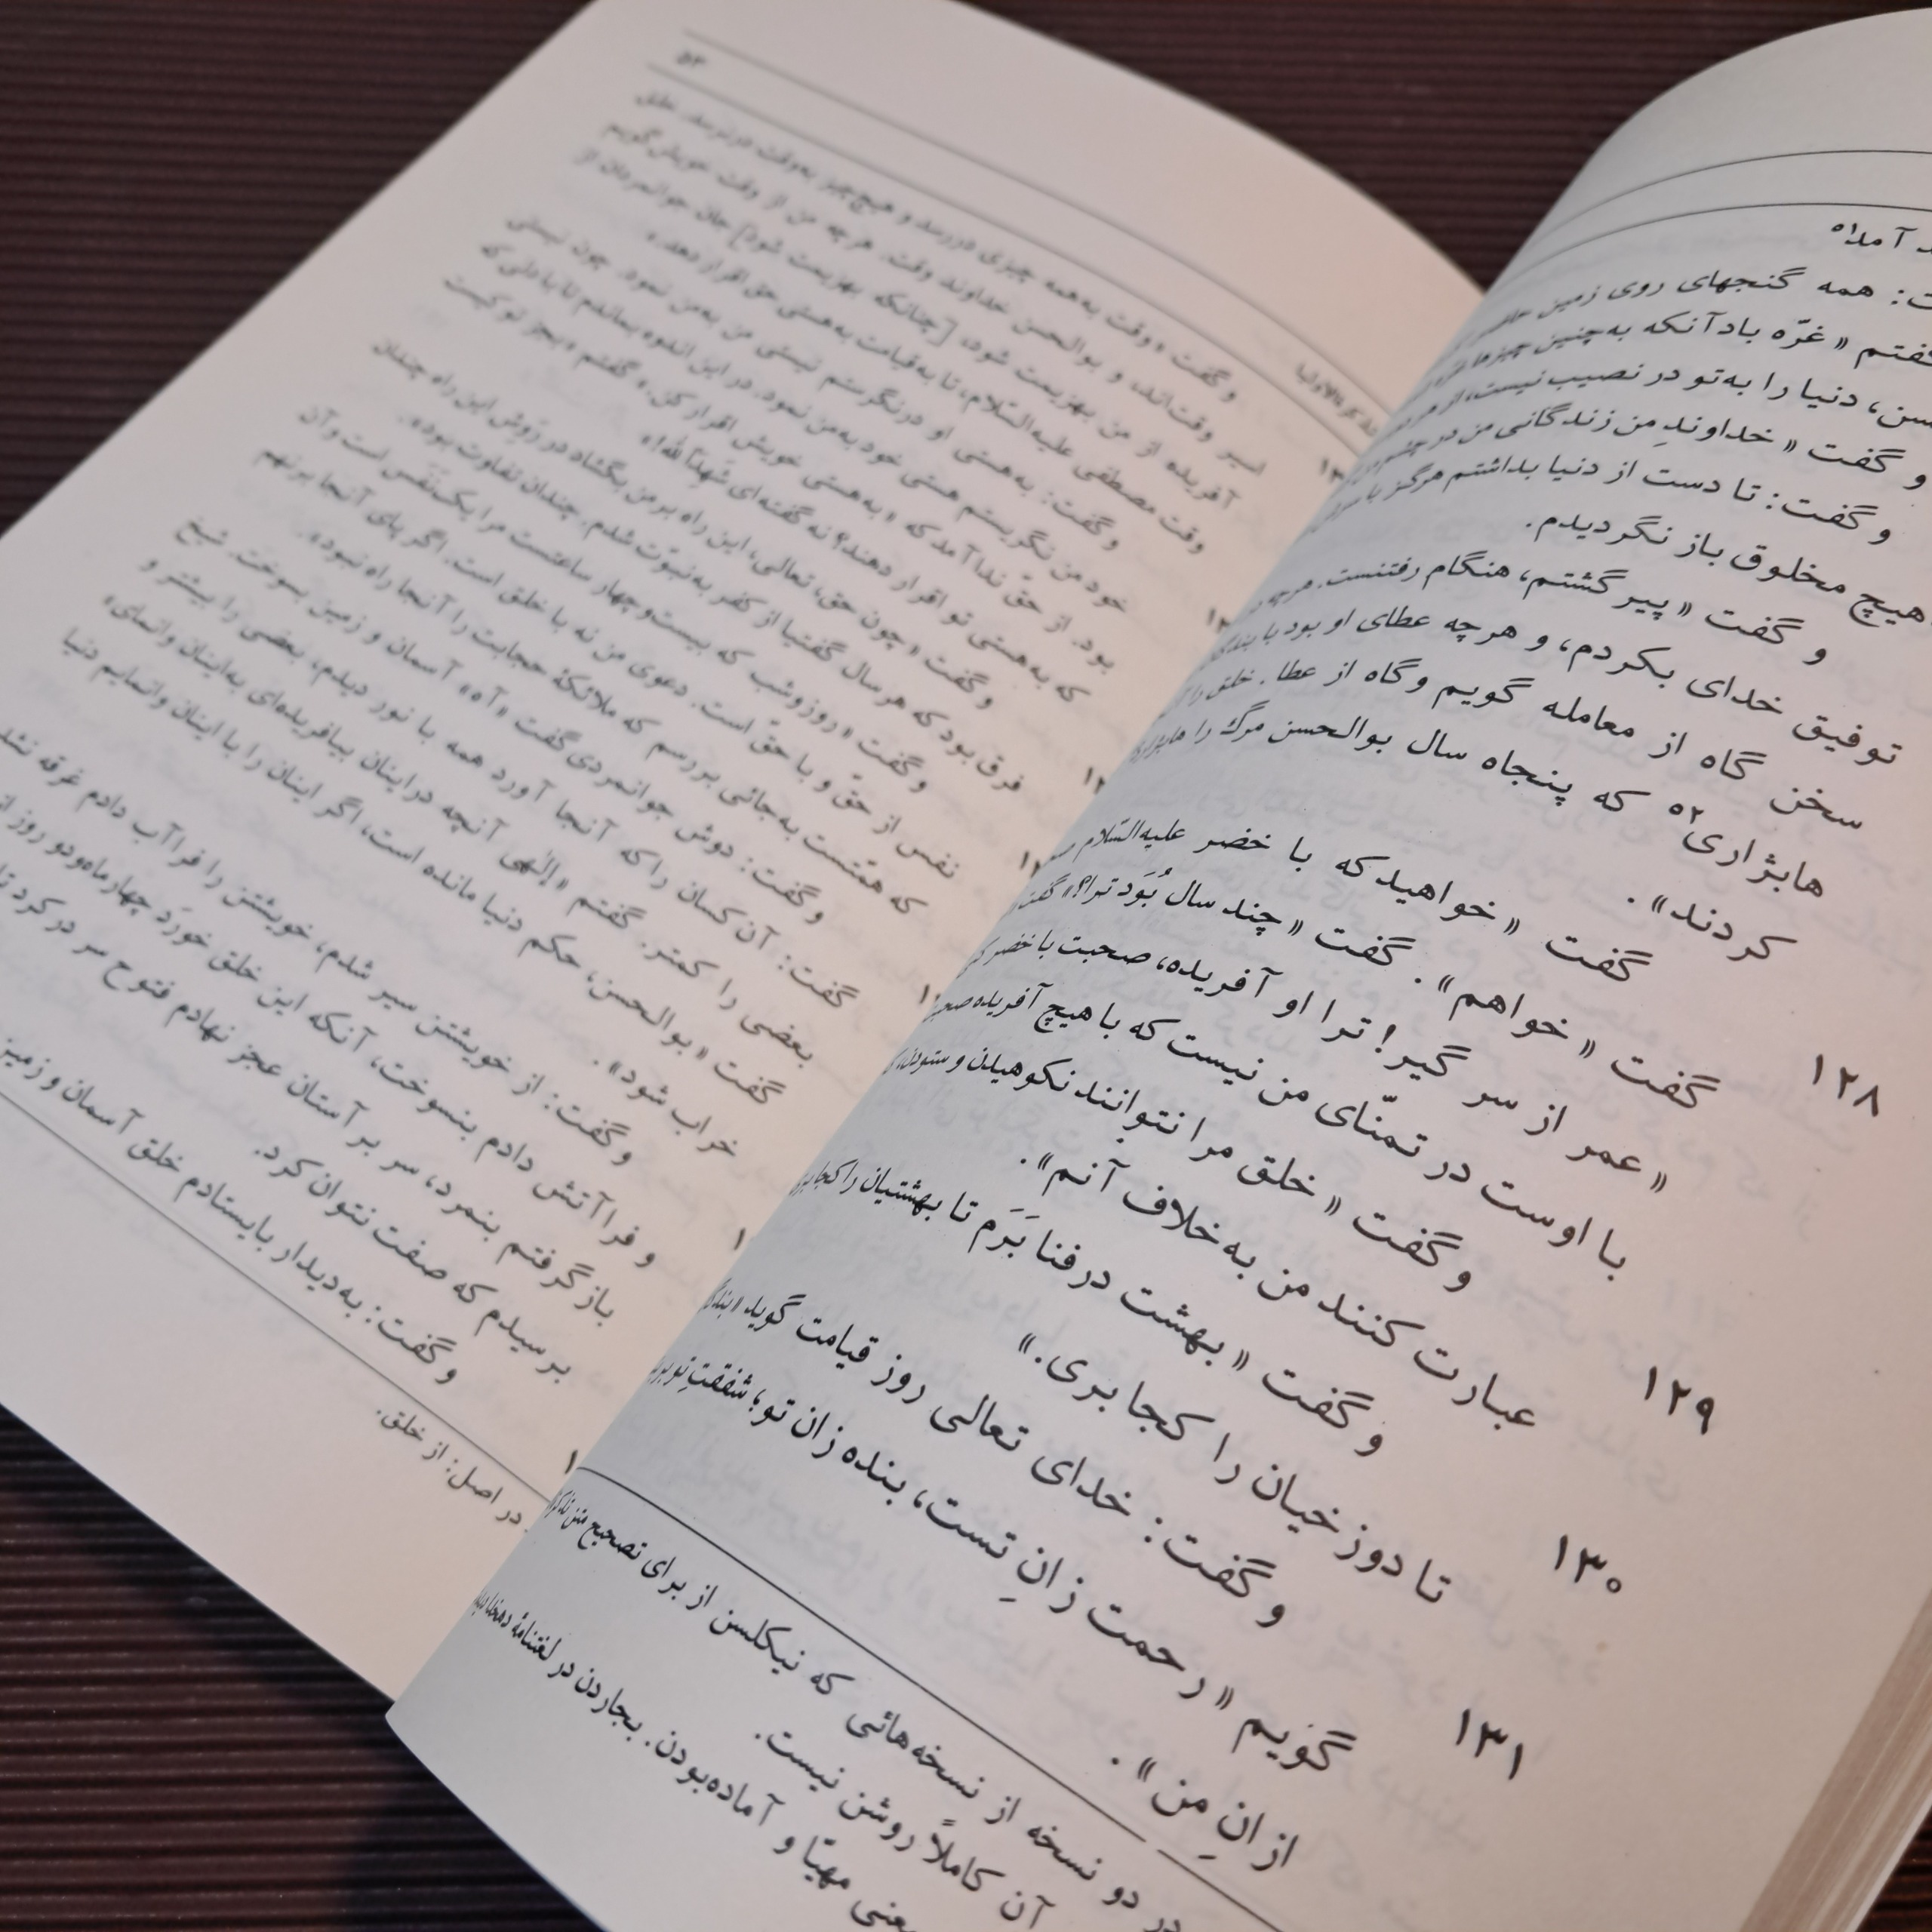 آمد۵۱
همه گنجهای روی زمین حاضر
گفتم «غرّه باد آنکه به‌چنین چیزها غره
دنیا را به‌تو در نصیب نیست، از هر دو
و گفت «خداوندِ من زندگانی من در چشم من
و گفت: تا دست از دنیا بداشتم هرگز با سرش
هیچ مخلوق باز نگردیدم.
و گفت «پیر گشتم، هنگام رفتنست. هرچه
توفیق خدای بکردم، و هرچه عطای او بود با بندگان
سخن گاه از معامله گویم و گاه از عطا. خلق را
هابژاری۵۲ که پنجاه سال بوالحسن مرگ را
کردند».
۱۲۸ گفت «خواهید که با خضر علیه‌السّلام
گفت «خواهم». گفت «چند سال بُوَد ترا؟» گفت
«عمر از سر گیر! ترا او آفریده، صحبت با خضر
با اوست در تمنّای من نیست که با هیچ آفریده
۱۲۹ و گفت «خلق مرا نتوانند نکوهیدن و ستودن،
عبارت کنند من به‌خلاف آنم».
۱۳۰ و گفت «بهشت درفنا بَرَم تا بهشتیان را کجا بری
تا دوزخیان را کجا بری.»
۱۳۱ و گفت: خدای تعالی روز قیامت گوید
گویم «رحمت زانِ تست، بنده زان تو؛ شفقتِ تو بر
از انِ من».
در دو نسخه از نسخه‌هائی که نیکلسن از برای تصحیح متن
آن کاملاً روشن نیست.
یعنی مهیّا و آماده‌بودن. بجاردن در لغتنامهٔ دهخدا
۵۳
و گفت «وقت به‌همه چیزی دررسد و هیچ چیز به‌وقت درنرسد. خلق
اسیر وقت‌اند، و بوالحسن خداوند وقت. هرچه من از وقت خویش گویم
آفریده از من بهزیمت شود، [چنانکه بهزیمت شود] جان جوانمردان از
وقت مصطفی علیه‌السّلام، تا به‌قیامت به‌هستی حق اقرار دهد.»
و گفت: به‌هستی او درنگرستم نیستی من به‌من نمود. چون نیستی
خود من نگریستم هستی خود به‌من نمود. در این اندوه بماندم تا با دلی که
بود. از حقّ ندا آمد که «به‌هستی خویش اقرار کن.» گفتم «بجز تو کیست
که به‌هستی تو اقرار دهد؟ نه گفته‌ای شَهِدَاللّٰه؟»
و گفت «چون حق، تعالی، این راه بر من بگشاد در رَوِش این راه چندان
فرق بود که هر سال گفتیا از کفر به‌نبوّت شدم. چندان تفاوت بود».
و گفت «روز و شب که بیست‌وچهار ساعتست مرا یک نَفَس است و آن
نفس از حقّ و با حقّ است. دعوی من نه با خلق است. اگر پای آنجا برنهم
که همّتست به‌جائی بررسم که ملائکهٔ حجابت را آنجا راه نبود».
و گفت: دوش جوانمردی گفت «آه» آسمان و زمین بسوخت. شیخ
گفت: آن کسان را که آنجا آورد همه با نور دیدم، بعضی را بیشتر و
بعضی را کمتر. گفتم «اِلٰهی آنچه دراینان بیافریده‌ای به‌اینان وانمای»
گفت «بوالحسن، حکم دنیا مانده است، اگر اینان را با اینان وانمایم دنیا
خراب شود».
و گفت: از خویشتن سیر شدم، خویشتن را فرا آب دادم غرقه نشد
و فرا آتش دادم بنسوخت، آنکه این خلق خورَد چهارماه‌ودو روز از
باز گرفتم بنمرد، سر بر آستان عجز نهادم فتوح سر در کرد تا
برسیدم که صفت نتوان کرد.
و گفت: به‌دیدار بایستادم خلق آسمان و زمین
در اصل: از خلق.